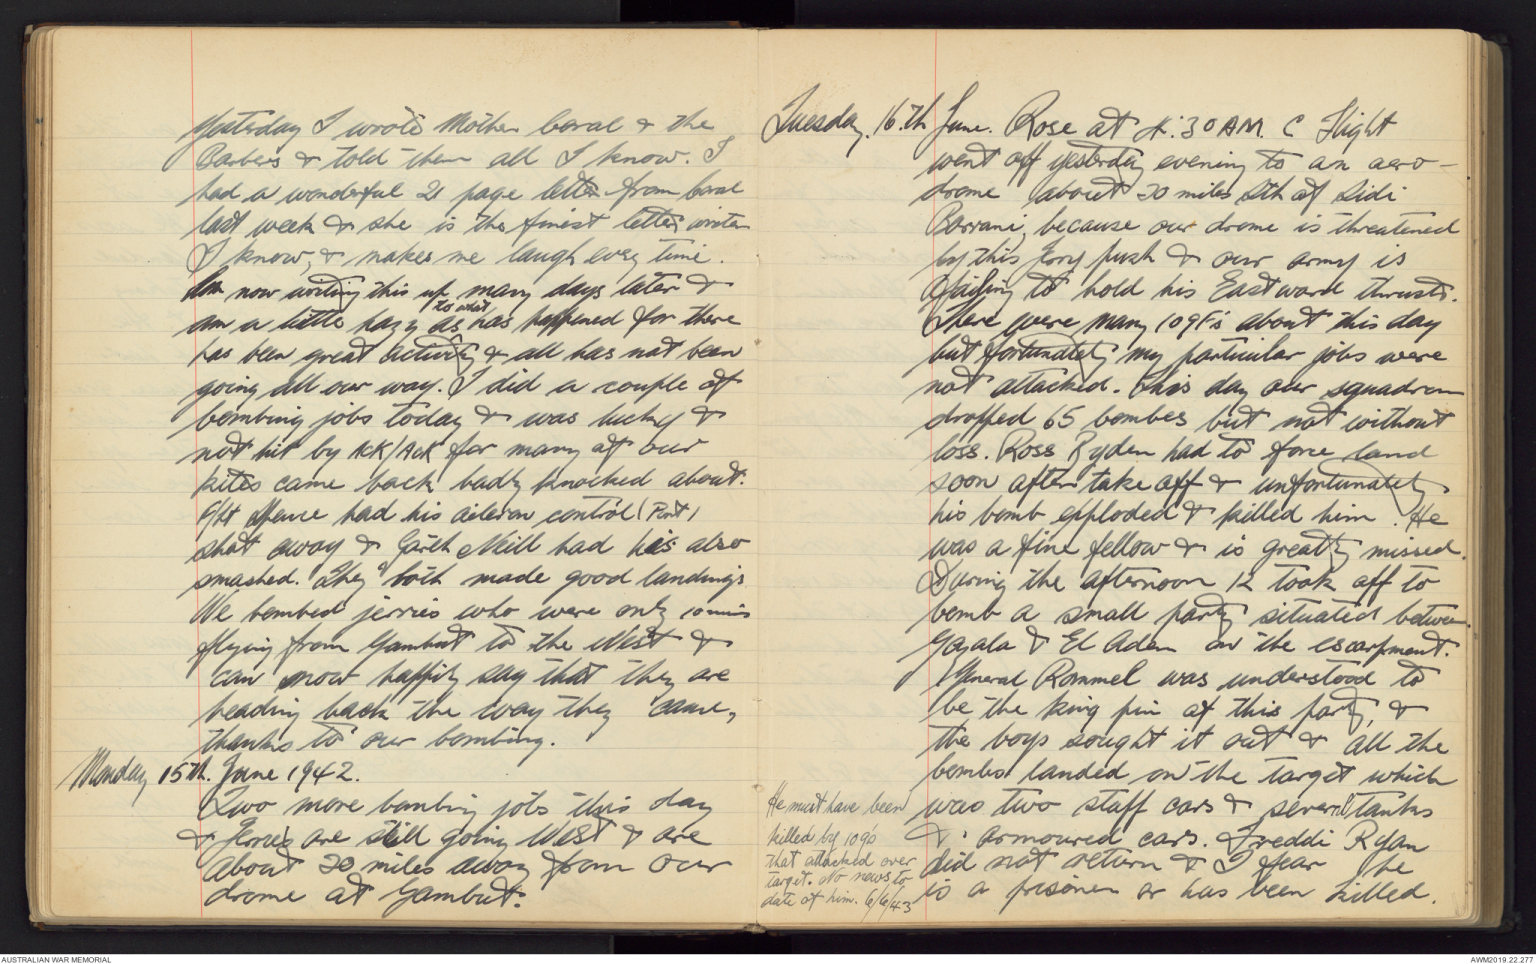 Yesterday I wrote Mother Coral & the
Barbers & told them all I know. I
had a wonderful 21 page letter from Coral
last week & she is the finest letter writer
I know, & makes me laugh every time.
Am now writing this up many days later &
am a little hazy as to what has happened for there
has been great activity & all has not been
going all our way. I did a couple of
bombing jobs today & was lucky &
not hit by ACK/ACK for many of our
kites came back badly knocked about.
F/Lt Spence had his aileron control (Port)
shot away & Garth Neill had his also
smashed. They both made good landings
We bombed jerries who were only 10 mins
flying from Gambut to the West &
can now happily say that they are
heading back the way they came,
thanks to our bombing.
Monday 15th. June 1942.
Two more bombing jobs this day
& Jerries are still going West & are
about 20 miles away from our
drome at Gambut.
Tuesday. 16.th June. Rose at 4.30 AM. C Flight
went off yesterday evening to an aero-
drome about 20 miles Sth of Sidi
Barrani, because our drome is threatened
by this Jerry push & our army is
failing to hold his Eastward thrusts.
There were many 109F's about this day
but fortunately my particular jobs were
not attacked. This day our squadron
dropped 65 bombes but not without
loss. Ross Ryden had to force land
soon after take off & unfortunately
his bomb exploded & killed him. He
was a fine fellow & is greatly missed.
During the afternoon 12 took off to
bomb a small party situated between
Gazala & El Adem on the escarpment.
General Rommel was understood to
be the king pin of this party, &
the boys sought it out & all the
bombs landed on the target which
was two staff cars & several tanks
& armoured cars. Freddi Ryan
did not return & I fear he
is a prisoner or has been killed.
He must have been
killed by 109s
that attacked over
target. No news to
date of him. 6/6/43
AUSTRALIAN WAR MEMORIAL
AWM2019.22.277